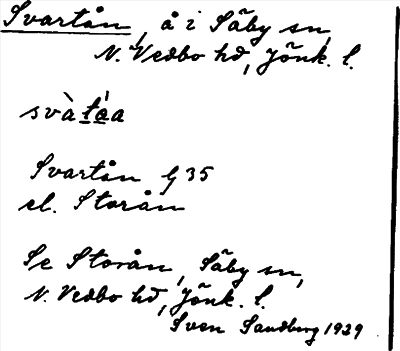 Svartån, å i Säby sn,
N. Vedbo hd, Jönk. l.
svàta̍a
Svartån G 35
el. Storån
Se Storån, Säby sn,
N. Vedbo hd, Jönk. l.
Sven Sandberg 1929